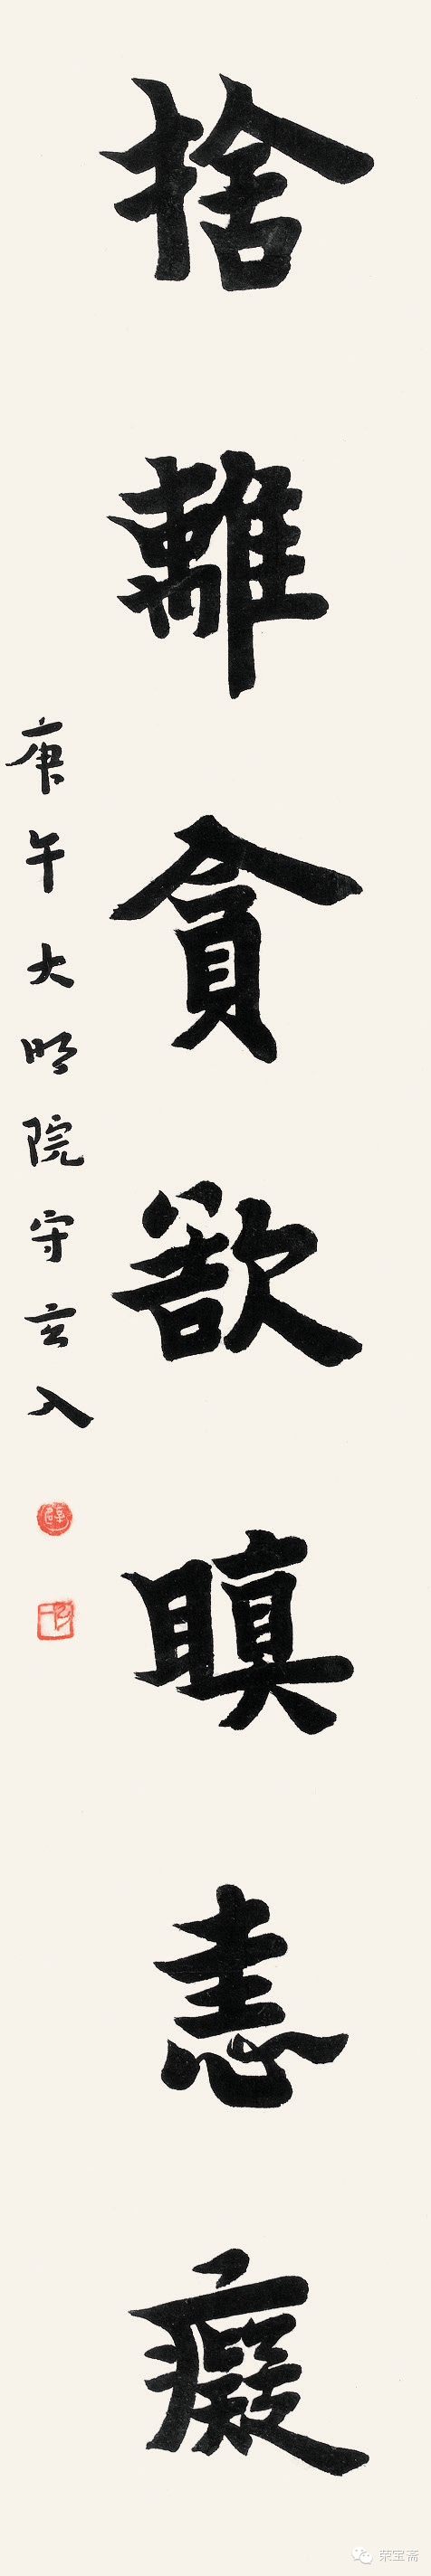 捨離貪欲瞋恚癡
庚午大明院守玄入
荣宝斋